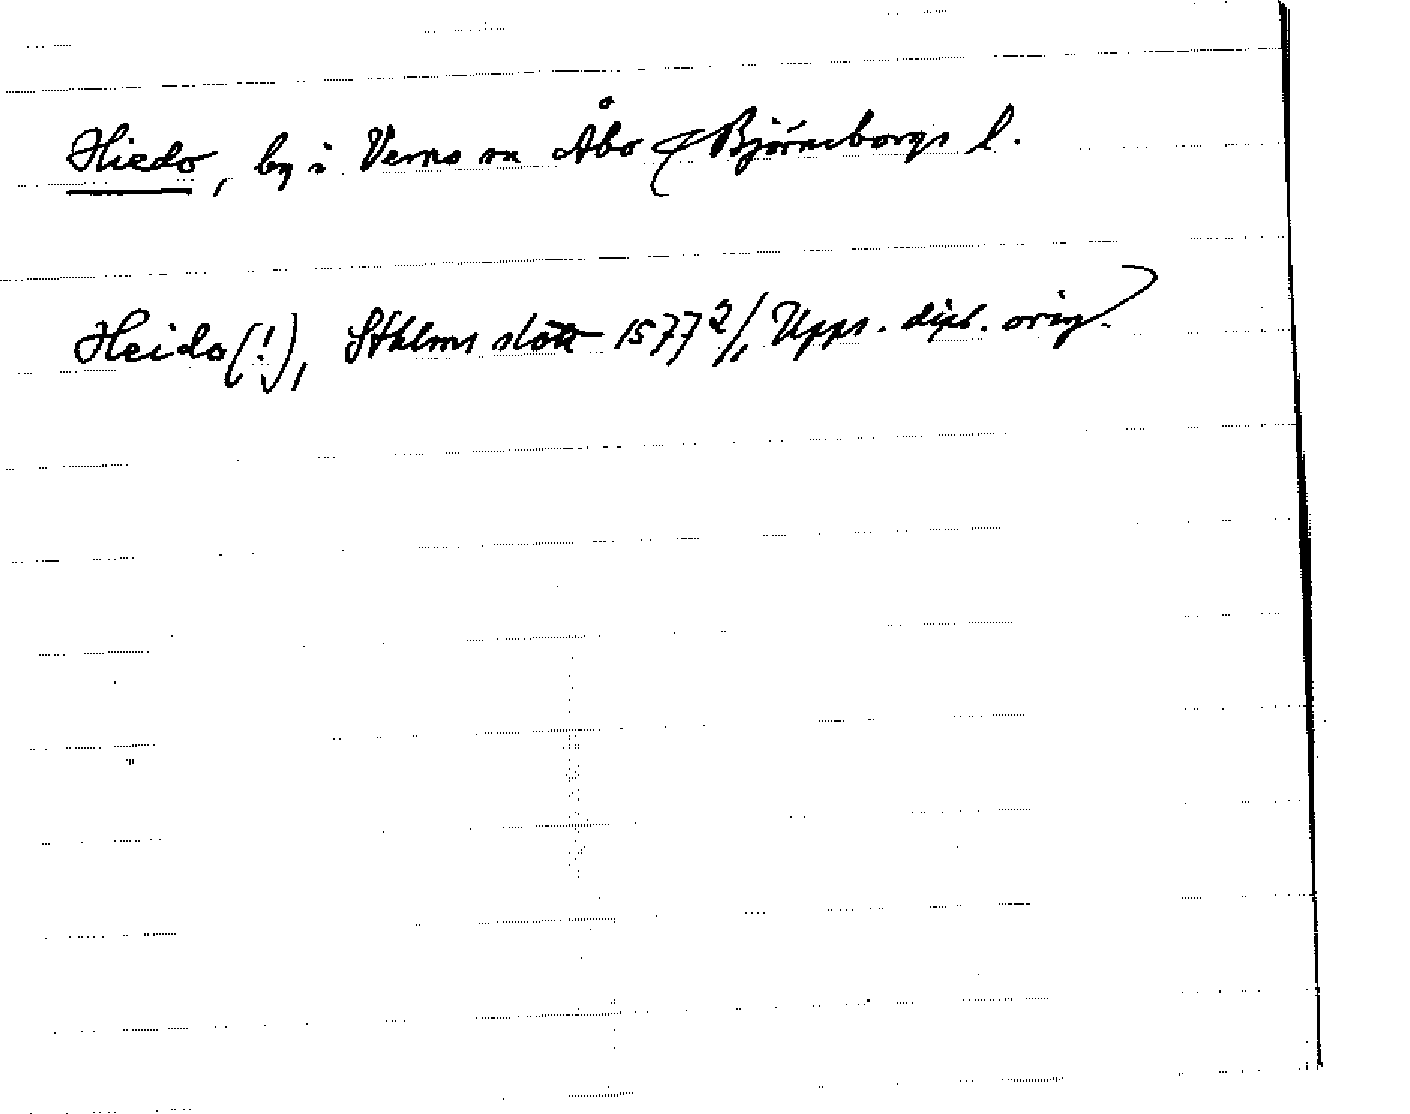 Hiedo, by i Vemo sn Åbo & Björneborgs l.
Heido(!), Sthlms slott 1577 2/, Upps. dipl. orig.